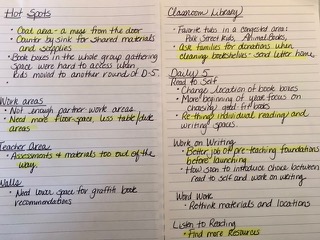 Hot Spots
• Coat area - a mess from the door
• Counter by sink for shared materials
and supplies
• Book boxes in the whole group gathering
space were hard to access when
kids moved to another round of D-5.
•
Work areas
• Not enough partner work areas
• Need more floor space, less table/desk
areas
Teacher Area
• Assessments & materials too out of the
way.
Walls
• Need lower space for graffiti book
recommendations
Classroom Library
• Favorite tubs in a congested area:
Polk Street Kids, Animal Books,
• Ask families for donations when
cleaning bookshelves - send letter home
Daily 5
Read to Self
• Change location of book boxes
• More beginning of year focus on
choosing good fit books
• Re-think individual reading and
writing spaces
Work on Writing
• Better job of pre-teaching foundations
before launching
• How soon to introduce choice between
read to self and work on writing
Word Work
• Rethink materials and locations
Listen to Reading
• Find more Resources